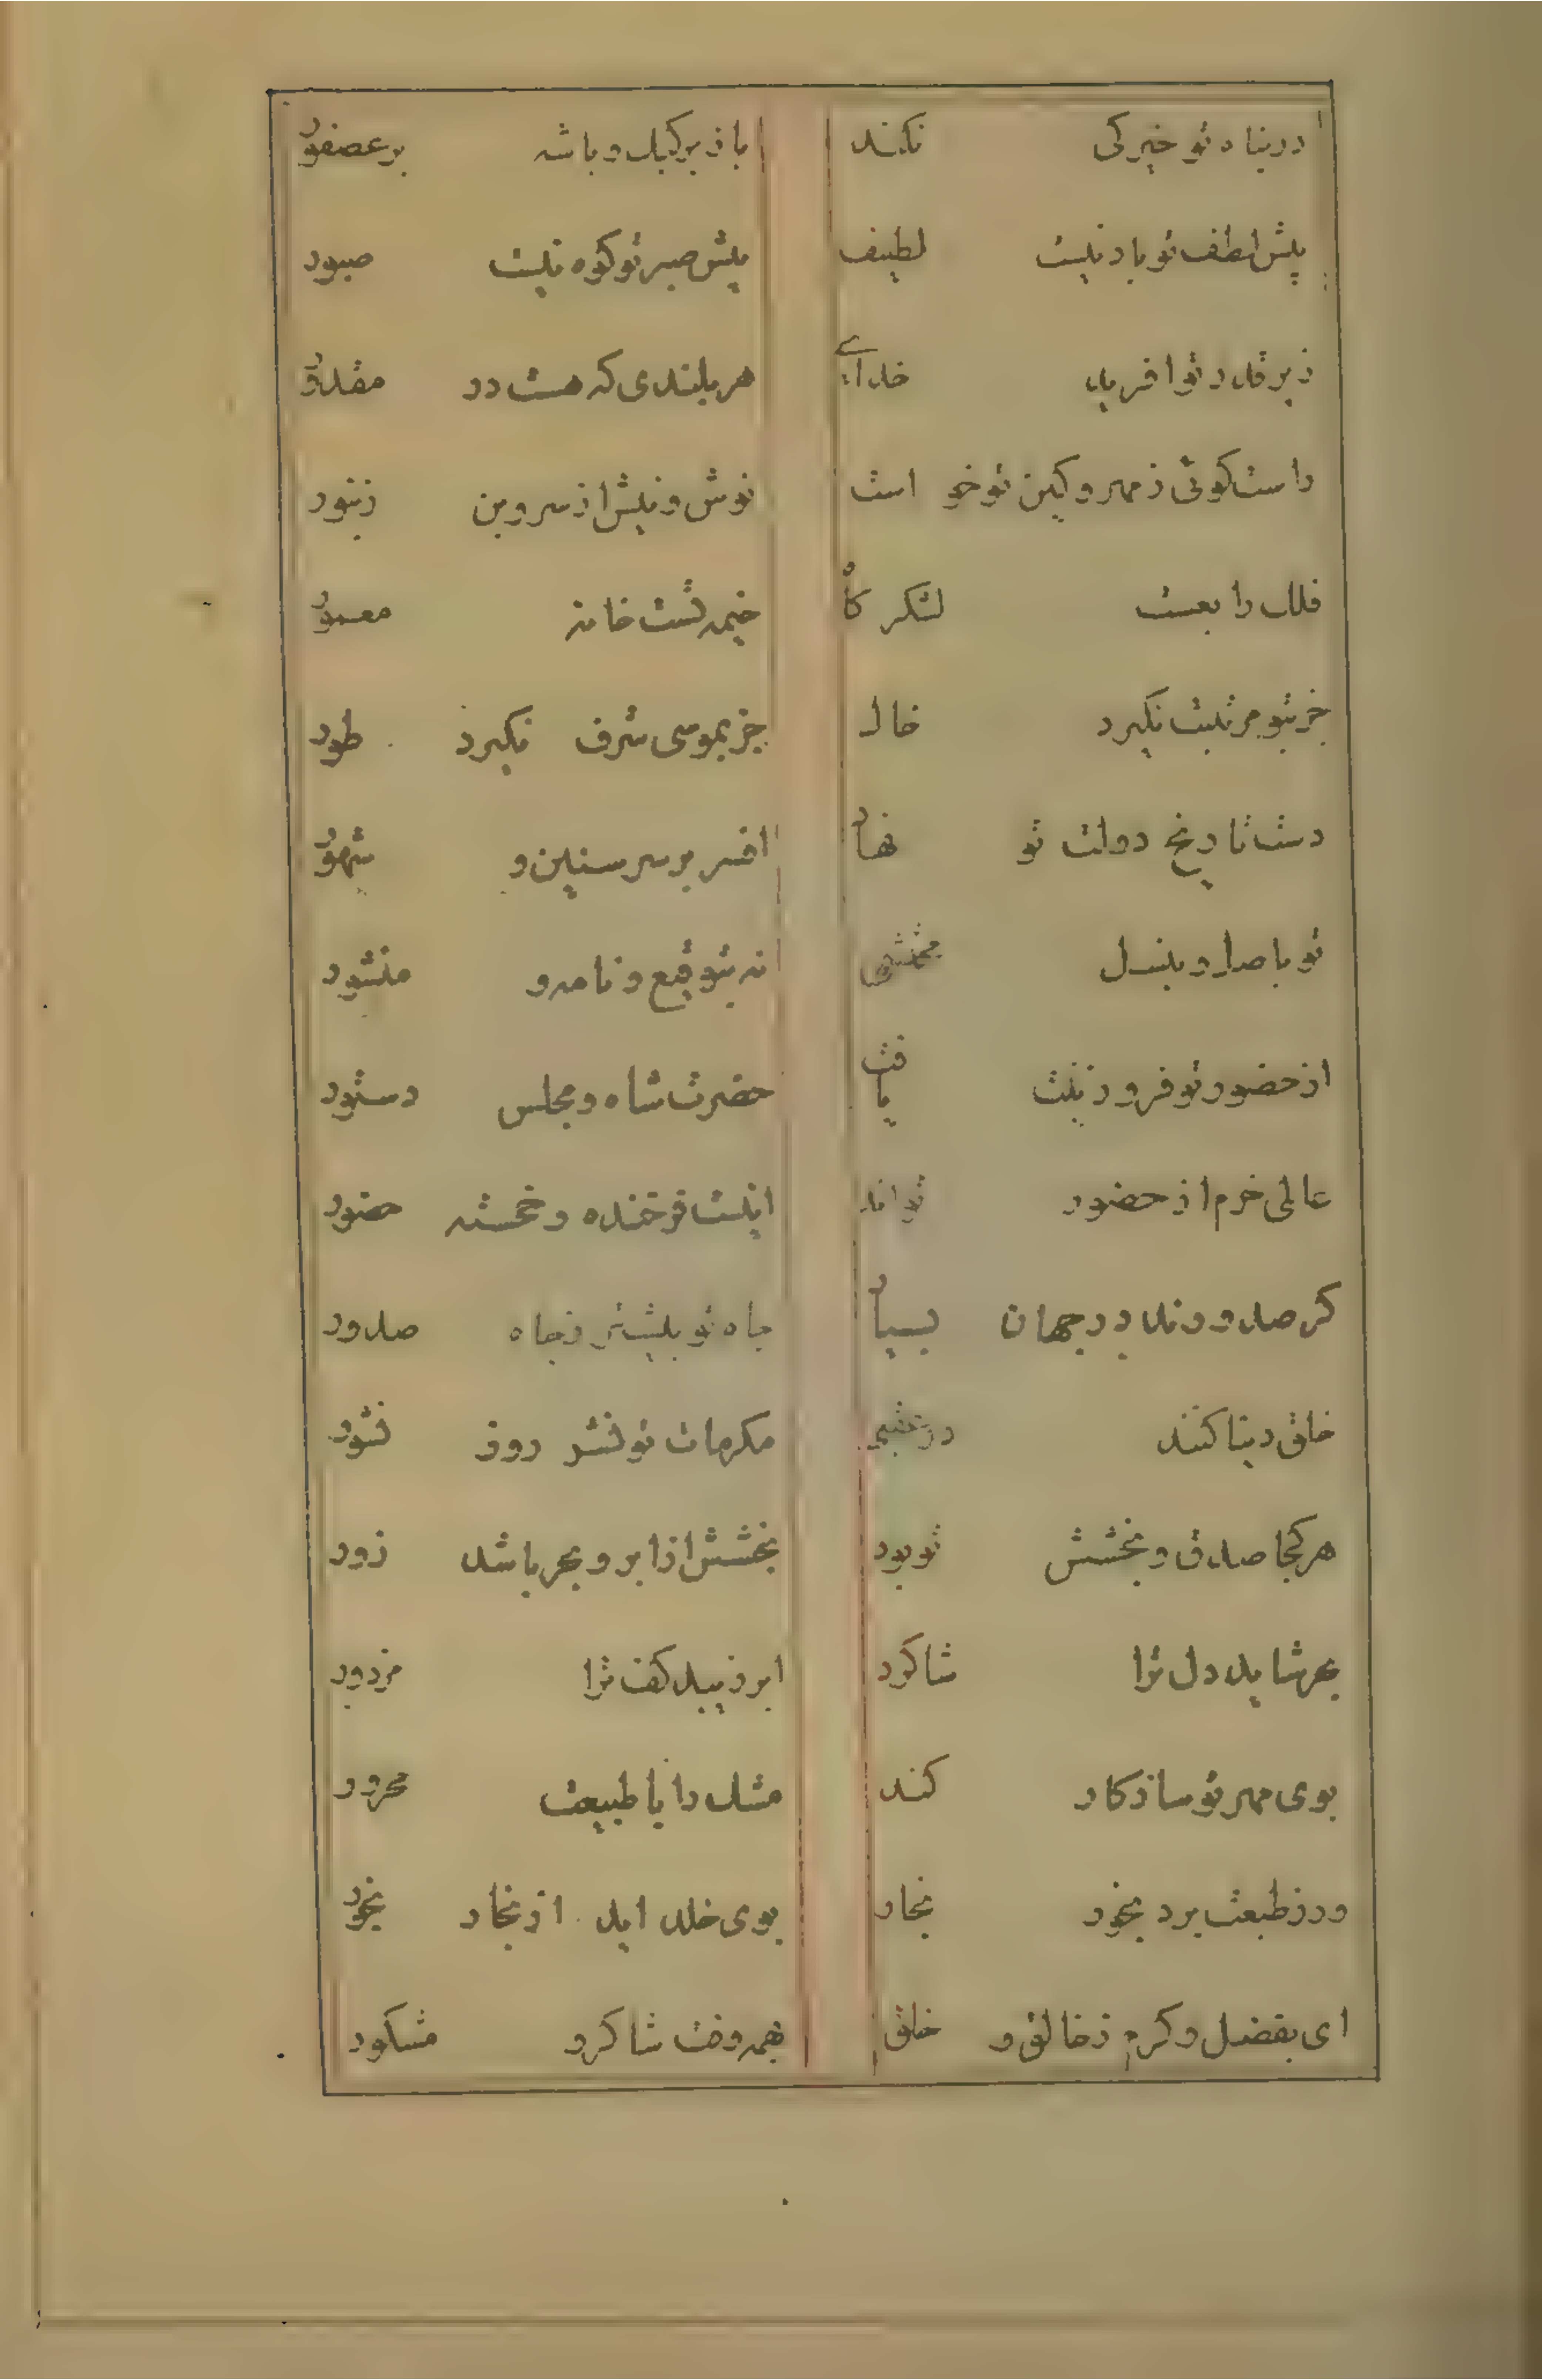 در پناه تو خیرکی نکند باز بر کبک و باشه بر عصفور
پیش لطف تو باد نیست لطیف پیش صبر تو کوه نیست صبور
زیر قدر تو افرید خدای هر بلندی که هست در مقدور
راست کوئی ز مهر و کین تو خواست نوش و نیش از سر و بن زنبور
فلک را بعست لشکر کاه خیمه تست خانه معمور
جز بتو مرتبت نکیرد خال جز بموسی شرف نکیرد طور
دست تاریخ دولت تو نهاد افسر بر سر سنین و شهور
تو باصل و بنسل محتشمی نه بتوقیع و نامه و منشور
از حضور تو فر و زینت یافت حضرت شاه و مجلس دستور
عالی خرم از حضور تواند اینت فرخنده و خجسته حضور
کر صدورند در جهان بسیار جاه تو بیشتر ز جاه صدور
خلق دینا کنند در عقبی مکرمات تو نشر روز نشور
هر کجا صدق و بخشش تو بود بخشش از ابر و بحر باشد زور
بحر شاید دل ترا شاکرد ابر زیبد کف ترا مزدور
بوی مهر تو سازکار کند مشک را با طبیعت محرور
ور ز طبعت برد بخور بخار بوی خلد اید از بخار بخور
ای بفضل و کرم ز خالق و خلق همه وقت شاکر و مشکور